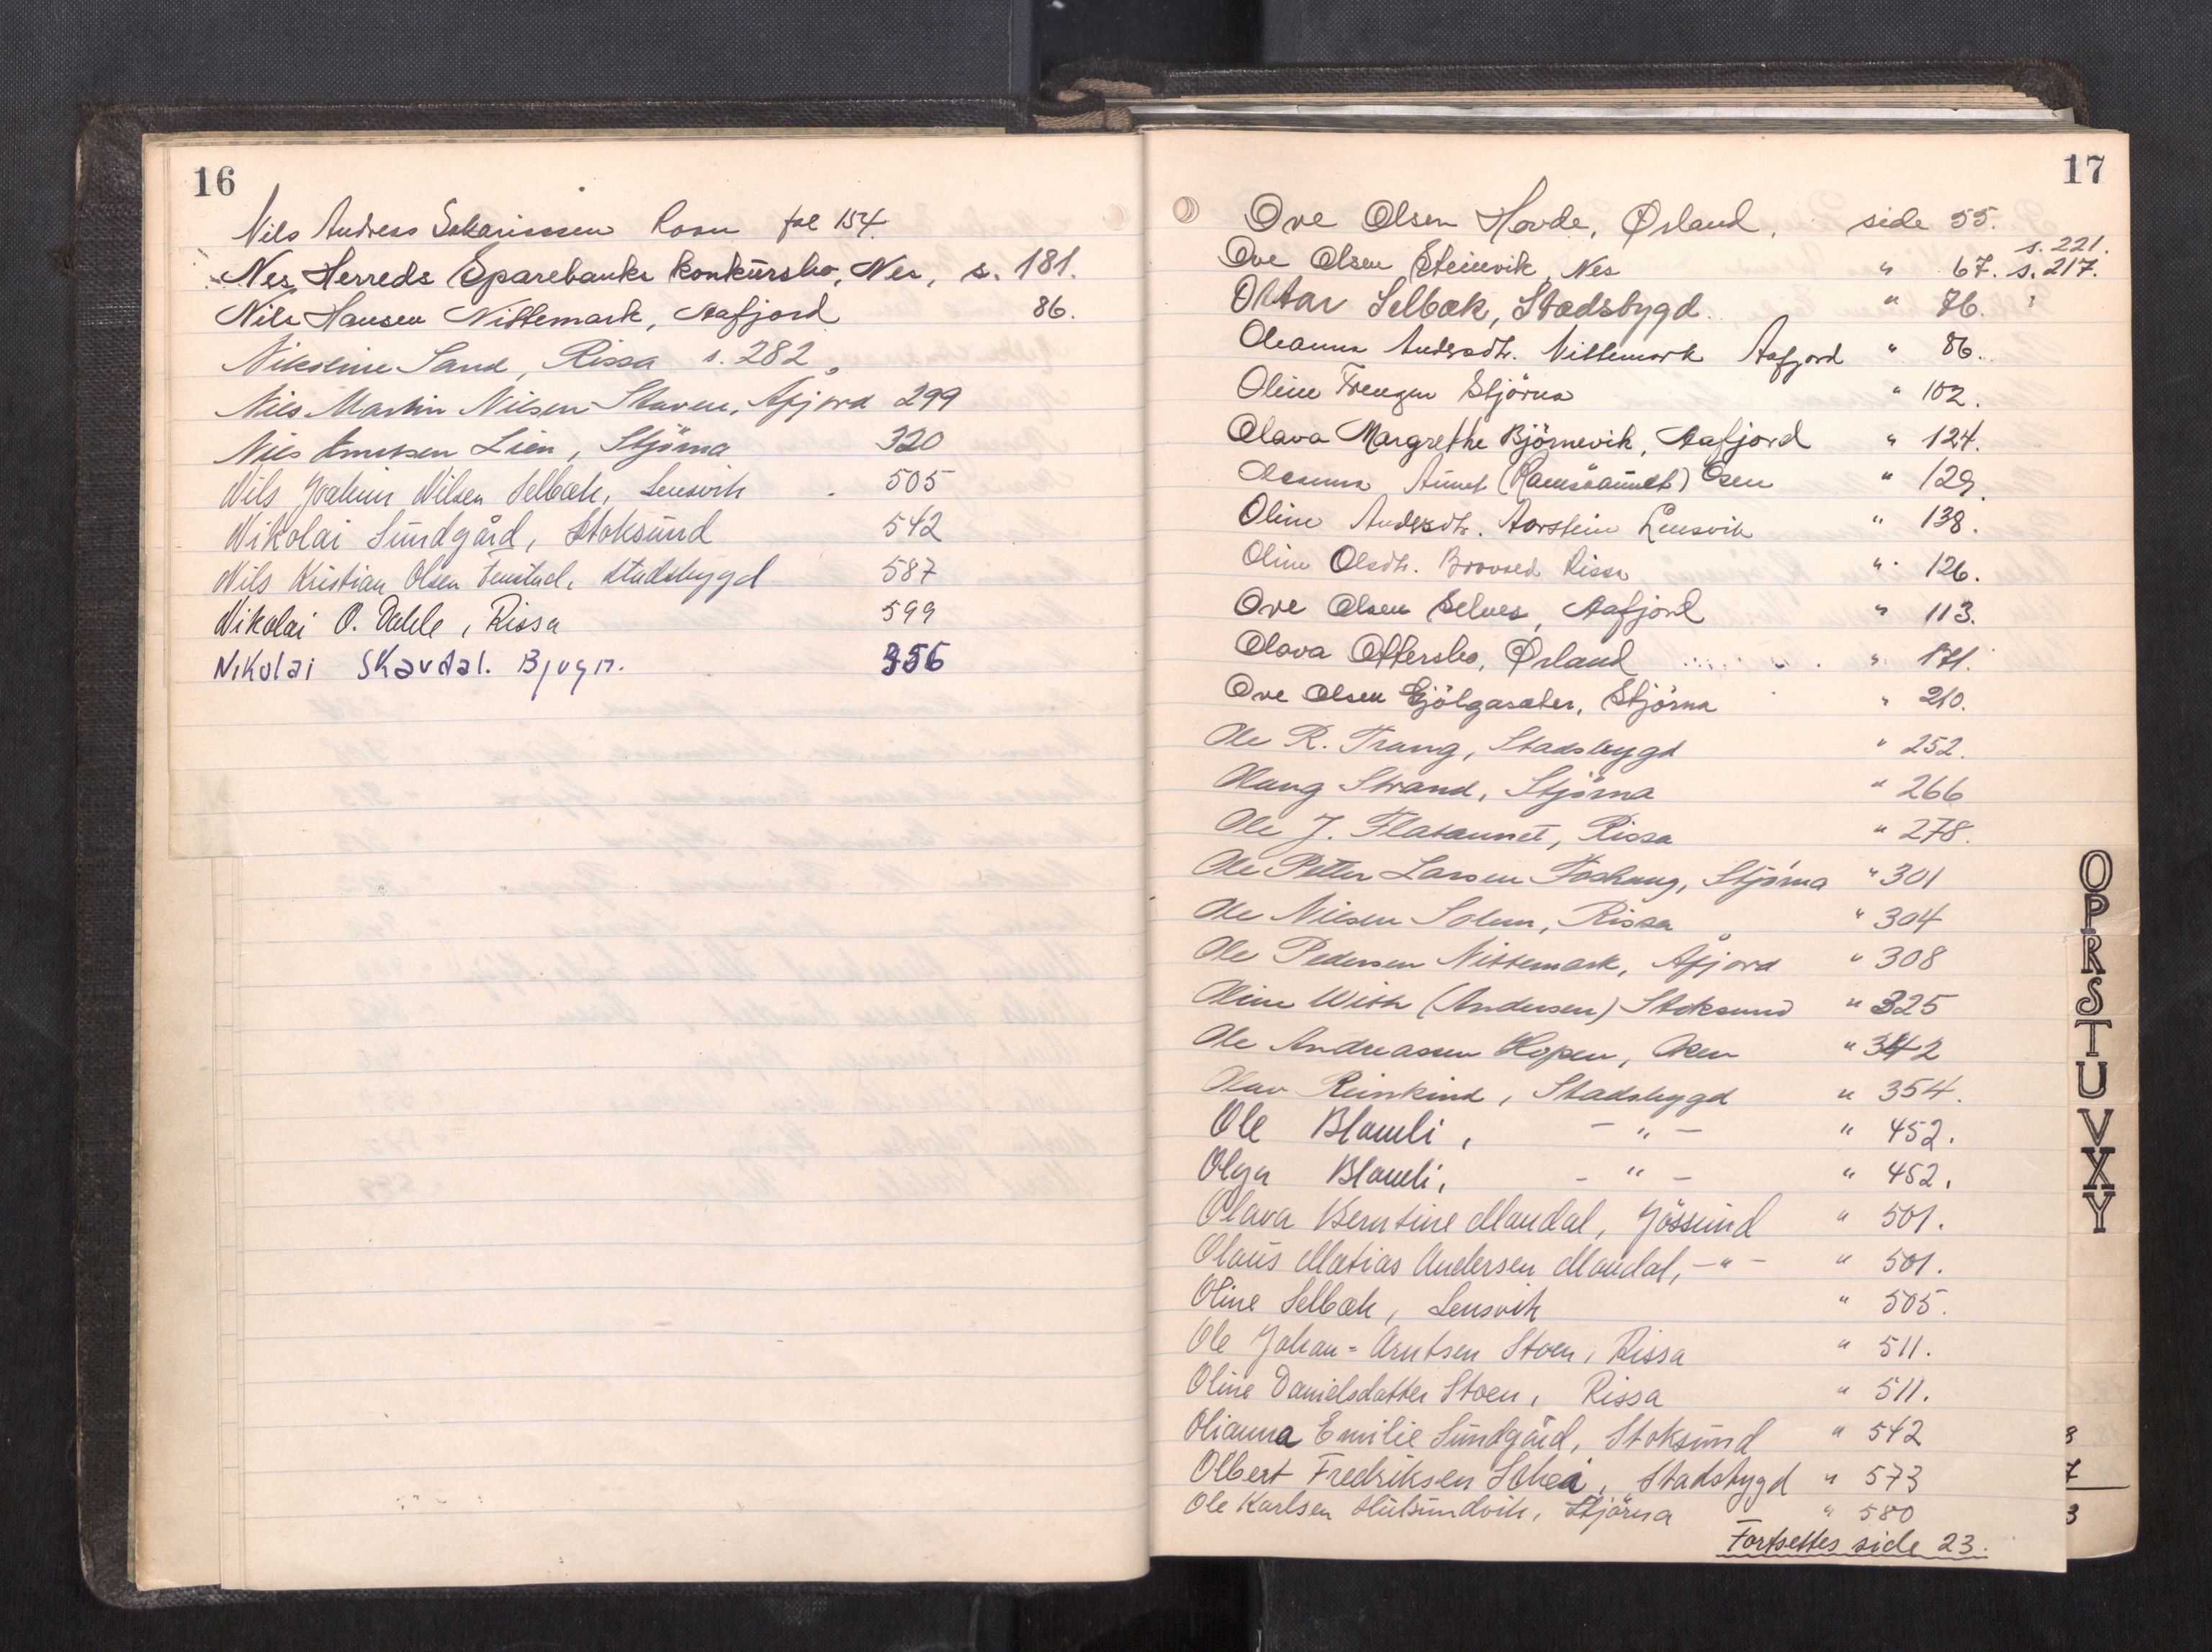 16
Nils Andreas Sakariassen Roan fol 154.
Nes Herreds Sparebanks konkursbo, Nes, s. 181.
Nils Hansen Nittemark, Aafjord 86.
Nikoline Sand, Rissa s. 282.
Nils Martin Nilsen Staven, Åfjord 299
Nils Arntsen Lien, Stjörna 320
Nils Joakim Nilsen Selbæk, Lensvik 505
Nikolai Sundgård, Stoksund 542
Nils Kristian Olsen Fenstad, Stadsbygd 587
Nikolai O. Dahle, Rissa 599
Nikolai Skavdal. Bjugn. 356
17
Ove Olsen Hovde, Ørland, side 55.
s. 221.
Ove Olsen Steinvik, Nes " 67. s. 217.
Ottar Selbæk, Stadsbygd. " 76.
Oleanna Andersdtr. Nittemark Aafjord " 86.
Oline Frengen Stjörna " 102.
Olava Margrethe Björnevik, Aafjord " 124.
Oleanna Aunet (Ramsöaunet) Osen " 129.
Oline Andersdtr. Aarstein Lensvik " 138.
Oline Olsdtr. Brovoed Rissa " 126.
Ove Olsen Selnes, Aafjord " 113.
Olava Ottersbo, Ørland " 171.
Ove Olsen Gjölgasæter, Stjörna " 210.
Ole R. Trang, Stadsbygd " 252.
Olaug Strand, Stjörna " 266
Ole J. Flataunet, Rissa " 278.
Ole Petter Larsen Foshaug, Stjörna " 301
Ole Nilsen Solem, Rissa " 304
Ole Pedersen Nittemark, Åfjord " 308
Oline With (Andersen) Stoksund " 325
Ole Andreassen Hopen, Osen " 342
Olav Reinkind, Stadsbygd " 354.
Ole Blamli, - " - " 452.
Olga Blamli, - " - " 452.
Olava Berntine Mandal, Jössund " 501.
Olaus Matias Andersen Mandal, - " - " 501.
Oline Selbæk, Lensvik " 505.
Ole Johan = Arntsen Stoen, Rissa " 511.
Oline Danielsdatter Stoen, Rissa " 511.
Olianna Emilie Sundgård, Stoksund " 542
Olbert Fredriksen Schei, Stadsbygd " 573
Ole Karlsen Hulsundvik, Stjörna " 580
Fortsettes side 23.
O
P
R
S
T
U
V
X
Y
8
7
3